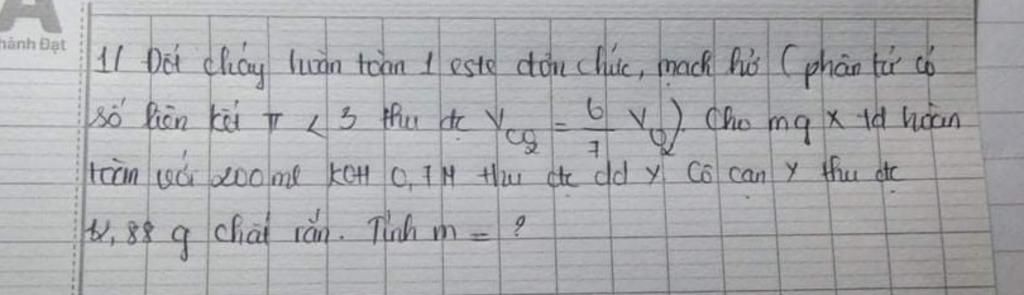 hành Đạt
1/ Đốt cháy hoàn toàn 1 este đơn chức, mạch hở (phân tử có
số liên kết π < 3 thu đc V CO2 = 6/7 V O2). Cho m g X td hoàn
toàn với 200ml KOH 0,7M thu đc dd Y Cô cạn Y thu đc
,88 g chất rắn. Tính m = ?